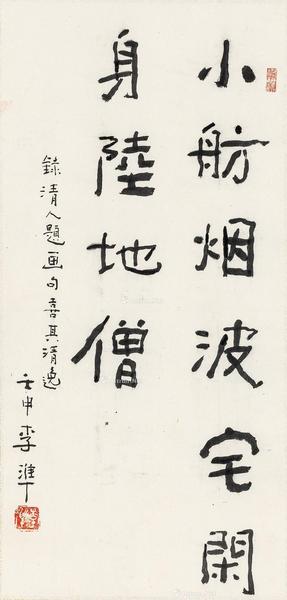 小舫烟波宅閑
身陸地僧
錄清人題画句喜其清逸
壬申李淮